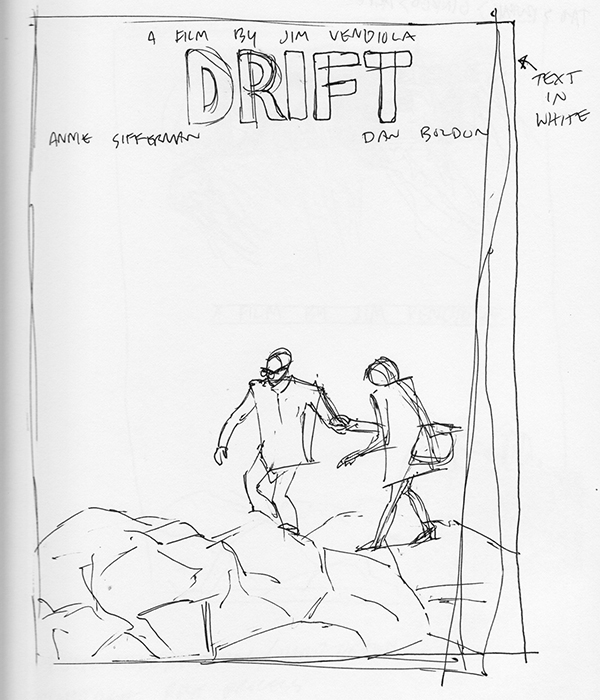 A FILM BY JIM VENDIOLA
DRIFT
ANNIE SIFFERMAN DAN BOLDON
TEXT
IN
WHITE